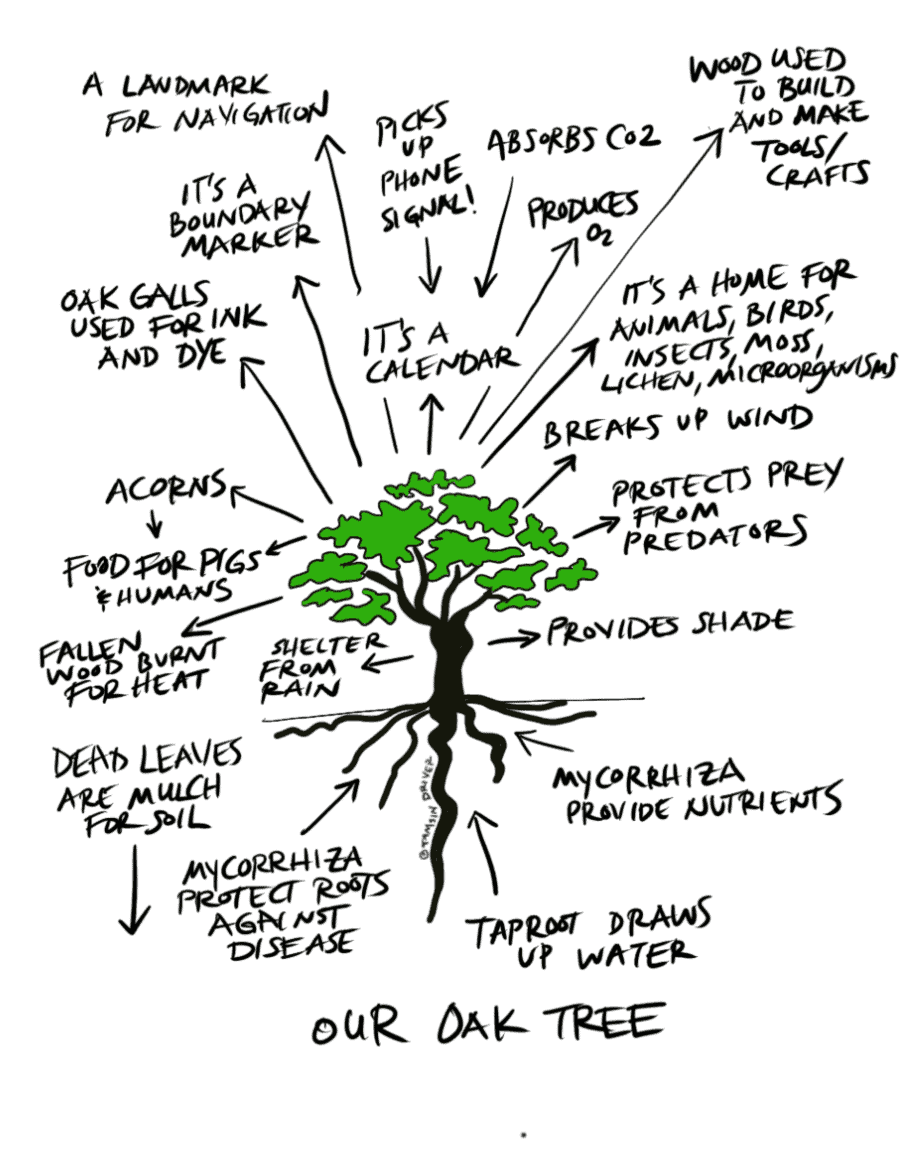 A LANDMARK
FOR NAVIGATION
PICKS
UP
PHONE
SIGNAL!
ABSORBS CO2
WOOD USED
TO BUILD
AND MAKE
TOOLS/
CRAFTS
IT'S A
BOUNDARY
MARKER
PRODUCES
O2
OAK GALLS
USED FOR INK
AND DYE
IT'S A
CALENDAR
IT'S A HOME FOR
ANIMALS, BIRDS,
INSECTS, MOSS,
LICHEN, MICROORGANISMS
BREAKS UP WIND
ACORNS
FOOD FOR PIGS
& HUMANS
PROTECTS PREY
FROM
PREDATORS
FALLEN
WOOD BURNT
FOR HEAT
SHELTER
FROM
RAIN
PROVIDES SHADE
DEAD LEAVES
ARE MULCH
FOR SOIL
MYCORRHIZA
PROVIDE NUTRIENTS
© TAMSIN DRIVER
MYCORRHIZA
PROTECT ROOTS
AGAINST
DISEASE
TAPROOT DRAWS
UP WATER
OUR OAK TREE